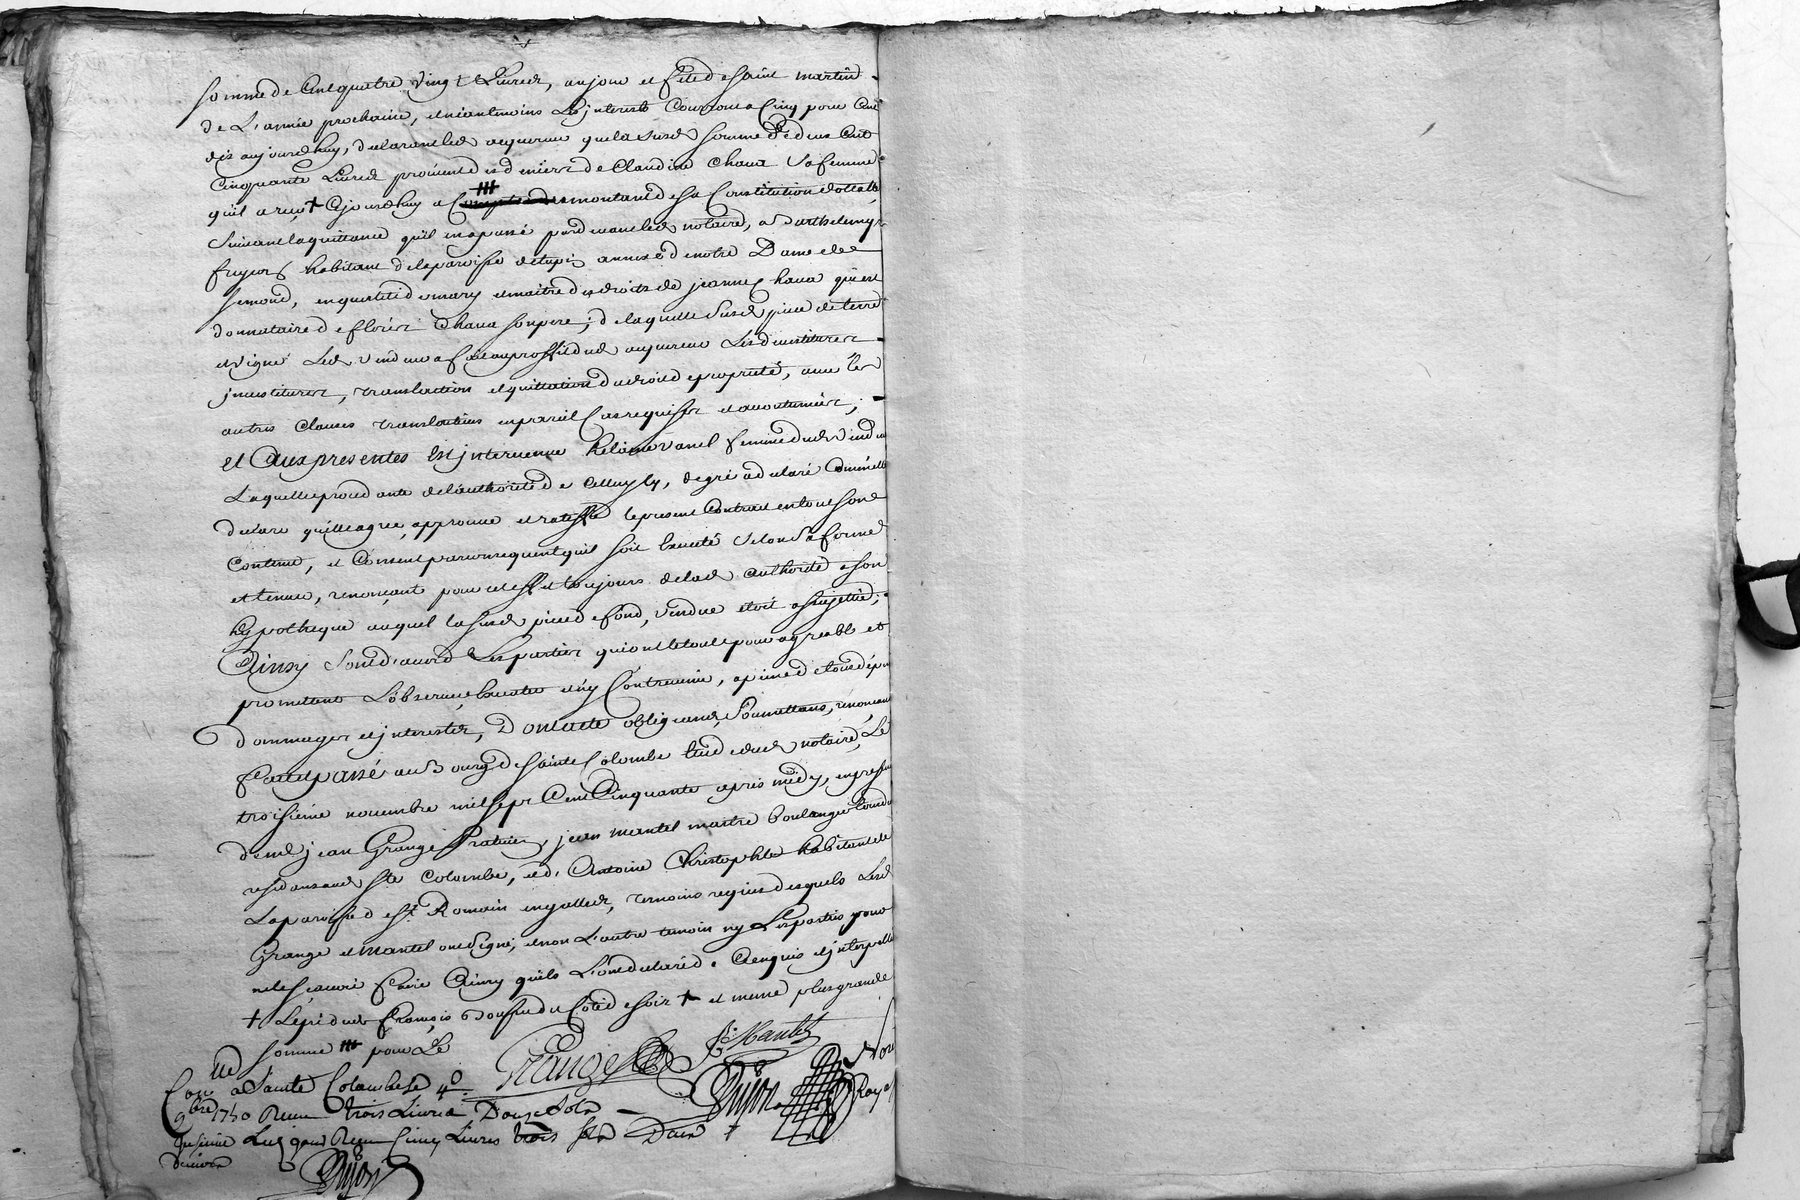 somme de Cent quatre vingt Livres, au jour et fete de saint martin
de L'année prochaine, et neantmoins Les jnterests Courront a Cinq pour Cent
dez aujourdhuy, declarant led acquereur que la susd somme de deux Cent
Cinquante Livres provient des deniers de Claudine Chava sa femme
quil a reçu + Cejourdhuy a Compte du montant de sa Constitution dottalle
suivant la quittance quil en a passé pardevant led notaire, a Barthelemy
habitant de la paroisse de tupin annexe de notre Dame de
semond, en qualité de mary et maitre des droits de jeanne Chava qui est
donnataire de Chava son pere; de laquelle susd piece de terre
et vigne Led vendeur a fait au proffit dud acquereur Les devestitures
jnvestitures, translation et quittation du droit de propriété, avec les
autres Clauses translatives en pareil Cas requises et accoutumées;
Et aux presentes Est jntervenue helaine vanel femme dud vendeur
Laquelle procedante de l'authorité de Celluy cy, de gré a declaré Comme elle
declare quelle agrée, approuve et ratiffie le present Contract en tout son
Contenu, et Consent par consequent quil soit Executé selon sa forme
et teneur, renonçant pour cet effet et toujours de lad authorité a son
hypotheque auquel la susd piece de fond vendue etoit assujettie;
Ainsy sont d'accord Les parties qui ont le tout pour agreable et
promettent L'observer, Executer et n'y Contrevenir, a peine de tous dépens
dommages et jnterests, Dont acte obligeant, soumettans, renonceant
Fait et passé au Bourg de sainte Colombe Etude dud notaire, Le
troisième novembre mil sept Cent Cinquante après midy, en presence
de mr jean Grange Praticien, jean mantel maitre boulanger tous deux
residans aud ste Colombe, et d'Antoine Christophle habitant de
La paroisse de St Romain en gallier, temoins requis desquels Lesd
Grange et Mantel ont signé, et non L'autre temoin ny Les parties pour
ne le sçavoir faire Ainsy quils L'ont declaré de Ce enquis et jnterpellés
+ Le pré dud François du Coté de soir + et meme plus grande
somme ### pour Le
Grange
Mantel
Dujon
Nore
Royal
Conle a Sainte Colombe Le 4e
9bre 1750 Reçu trois Livres Douze sols
Reçu Cinq Livres trois sols Deux
deniers
Dujon